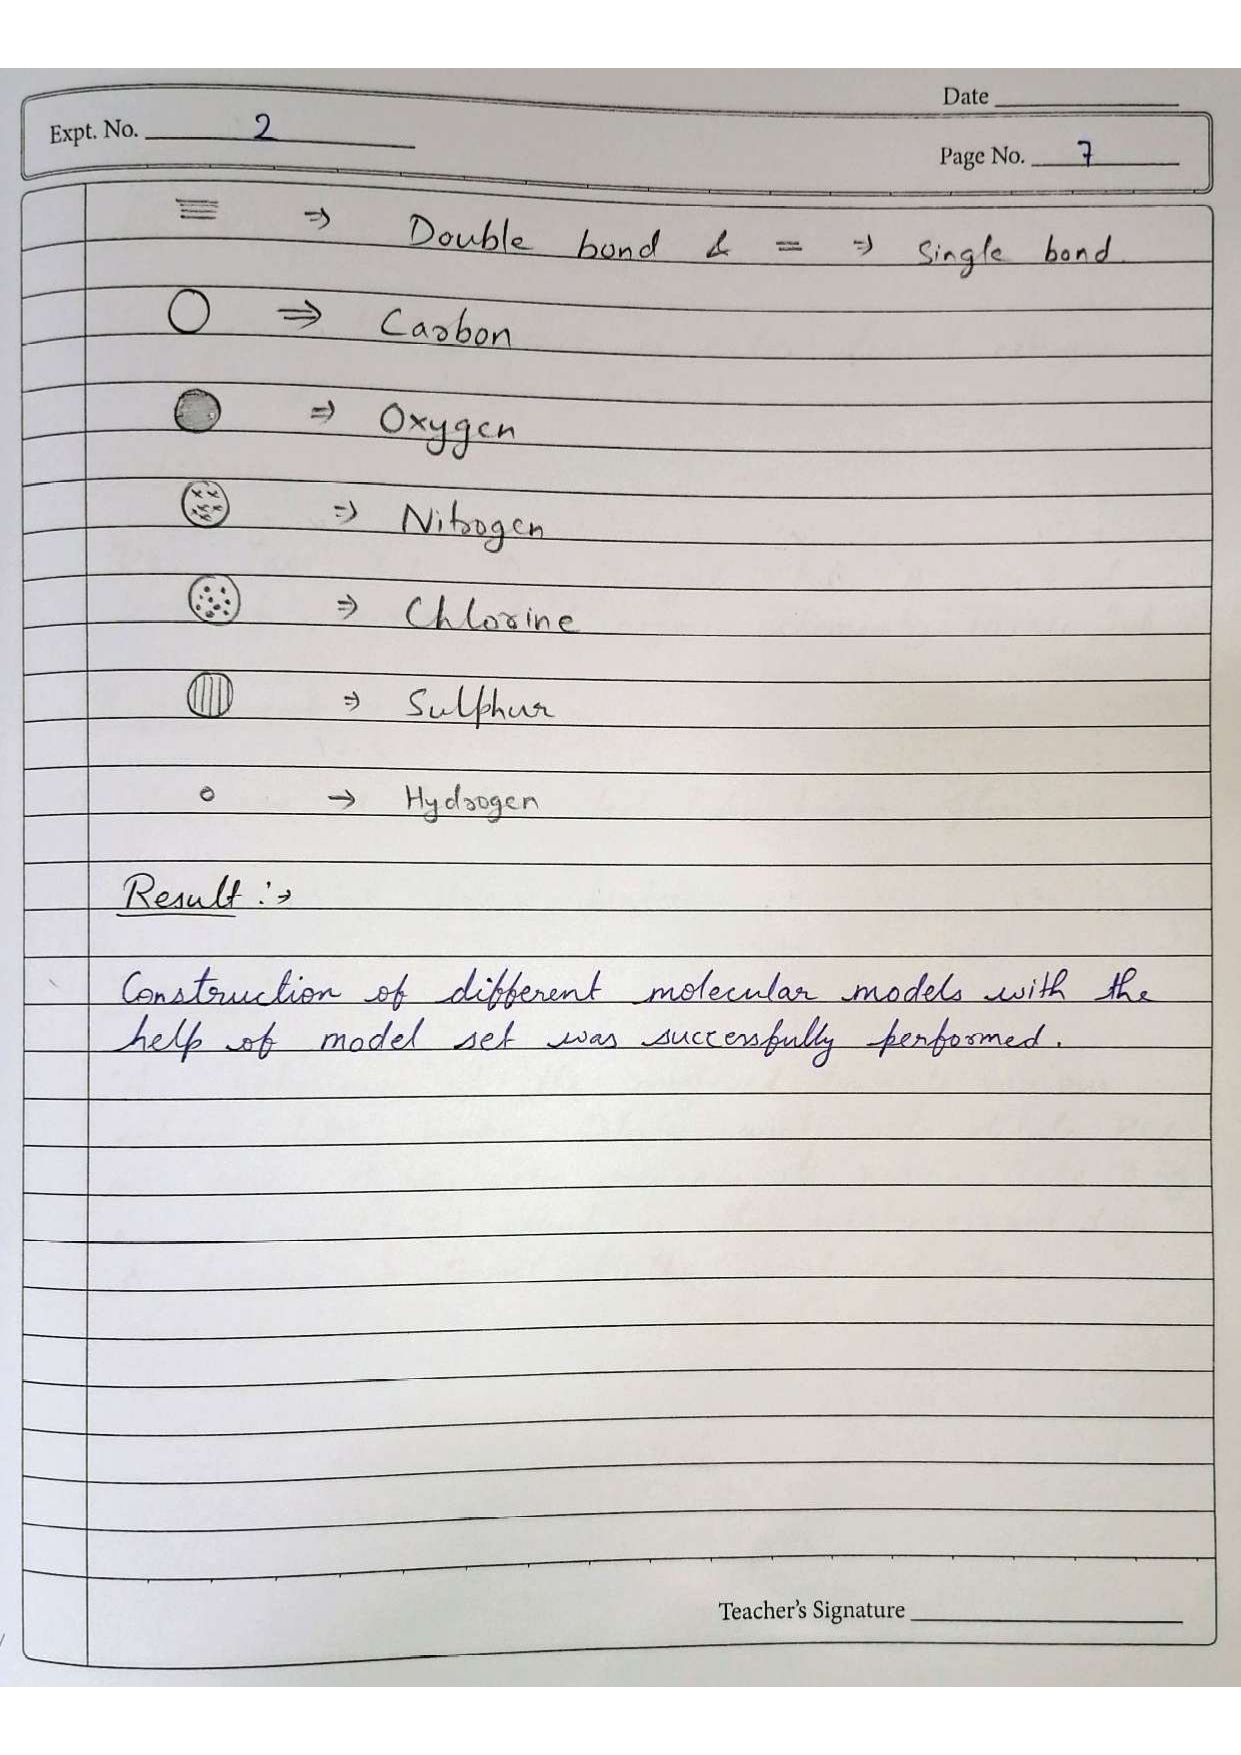 Date
Expt. No. 2
Page No. 7
⇒ Double bond & = ⇒ Single bond.
⇒ Carbon
⇒ Oxygen
⇒ Nitrogen
⇒ Chlorine
⇒ Sulphur
→ Hydrogen
Result :→
Construction of different molecular models with the
help of model set was successfully performed.
Teacher's Signature